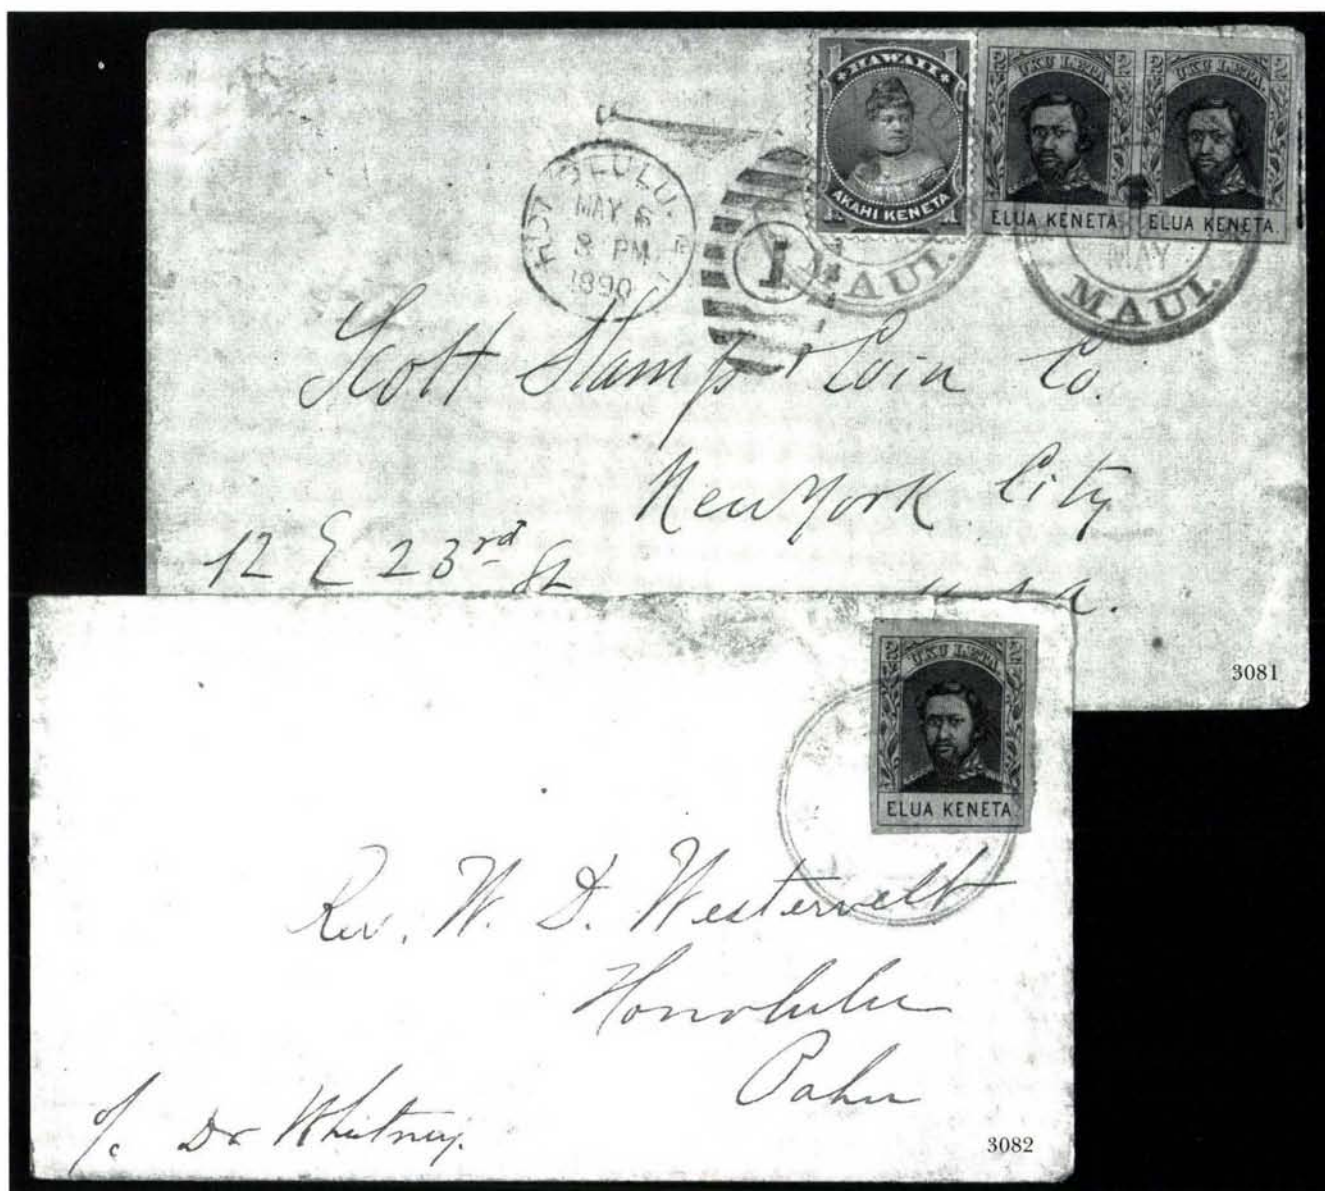 1 HAWAII 1
AKAHI KENETA
2 UKU LETA 2
ELUA KENETA.
2 UKU LETA 2
ELUA KENETA.
HONOLULU
MAY 6
8 PM
1890
1
MAUI.
MAY
MAUI.
Scott Stamp & Coin Co.
New York City
12 E 23rd St
U.S.A.
3081
2 UKU LETA 2
ELUA KENETA.
Rev. W. D. Westervelt
Honolulu
Oahu
c/o Dr Whitney.
3082